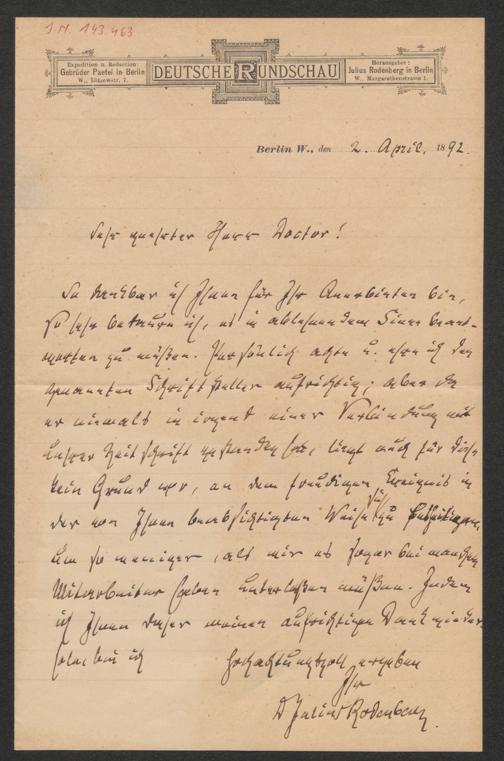 J.N. 143.463
Expedition u. Redaction:
Gebrüder Paetel in Berlin
W., Lützowstr. 7.
DEUTSCHE RUNDSCHAU
Herausgeber:
Julius Rodenberg in Berlin
W., Margarethenstrasse 1.
Berlin W., den 2. April. 1892.
Sehr geehrter Herr Doctor!
So dankbar ich Ihnen für Ihr Anerbieten bin,
so sehr bedaure ich, es in ablehnendem Sinne beant-
worten zu müßen. Persönlich achte u. ehre ich den
genannten Schriftsteller aufrichtig; aber da
er niemals in irgend einer Verbindung mit
unsrer Zeitschrift gestanden hat, liegt auch für diese
kein Grund vor, an dem freudigen Ereigniß in
der von Ihnen beabsichtigten Weise sich zu betheiligen,
um so weniger, als wir es sogar bei manchen
Mitarbeiter haben unterlaßen müßen. Indem
ich Ihnen daher meinen aufrichtigen Dank wieder-
hole bin ich
hochachtungsvoll ergeben
Ihr
D Julius Rodenberg.